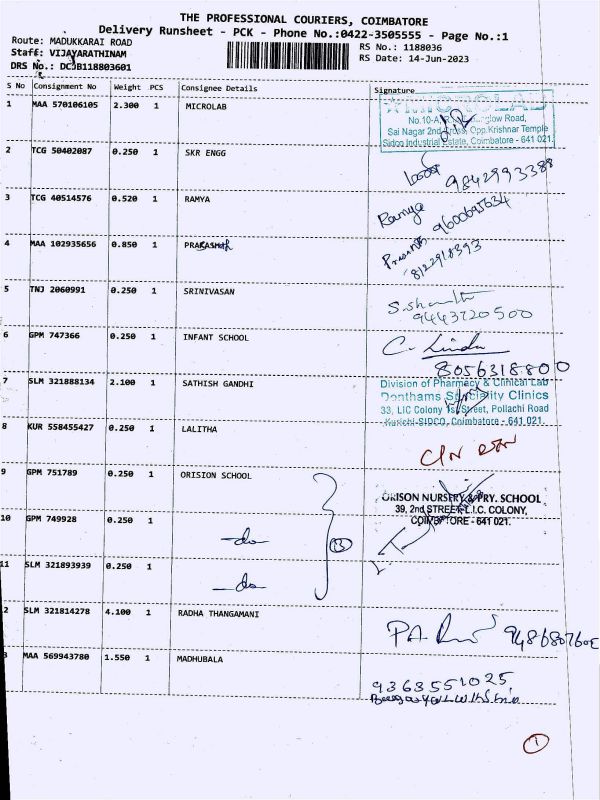 THE PROFESSIONAL COURIERS, COIMBATORE
Delivery Runsheet - PCK - Phone No.:0422-3505555 - Page No.:1
Route: MADUKKARAI ROAD
RS No.: 1188036
Staff: VIJAYARATHINAM
RS Date: 14-Jun-2023
DRS No.: DCJB118803601
S No Consignment No Weight PCS Consignee Details Signature
1 MAA 570106105 2.300 1 MICROLAB
No.10-A,
Sai Nagar 2nd Cross, Opp.Krishnar Temple
Sidco Industrial Estate, Coimbatore - 641 021.
2 TCG 50402087 0.250 1 SKR ENGG
9842993388
3 TCG 40514576 0.520 1 RAMYA
Ramya
9600695634
4 MAA 102935656 0.850 1 PRAKASH
Prasanth
8122918393
5 TNJ 2060991 0.250 1 SRINIVASAN
9443720500
6 GPM 747366 0.250 1 INFANT SCHOOL
8056318800
7 SLM 321888134 2.100 1 SATHISH GANDHI
Division of Pharmacy & Clinical Lab
Donthams Speciality Clinics
33, LIC Colony 1st Street, Pollachi Road
Kurichi-SIDCO, Coimbatore - 641 021.
8 KUR 558455427 0.250 1 LALITHA
9 GPM 751789 0.250 1 ORISION SCHOOL
ORISON NURSERY & PRY. SCHOOL
39, 2nd STREET L.I.C. COLONY,
COIMBATORE - 641 021.
10 GPM 749928 0.250 1
-do
11 SLM 321893939 0.250 1
-do
2 SLM 321814278 4.100 1 RADHA THANGAMANI
P.A.
3 MAA 569943780 1.550 1 MADHUBALA
9363551025
1